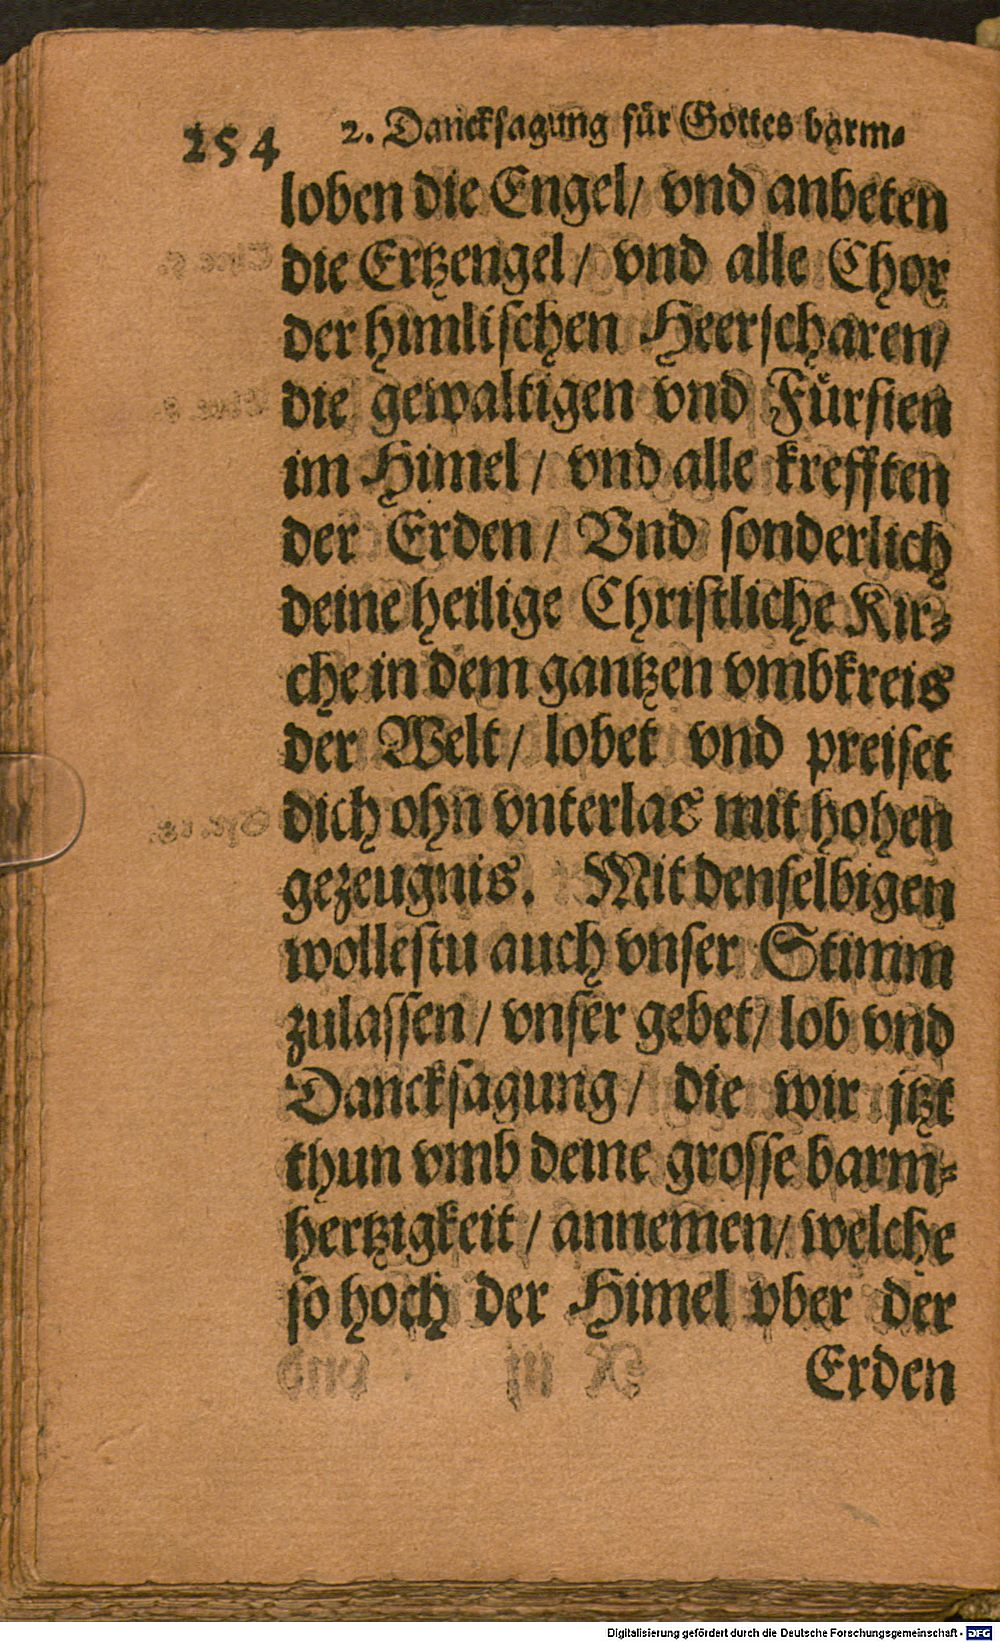 254 2. Dancksagung für Gottes barm⸗
loben die Engel/ vnd anbeten
die Ertzengel/ vnd alle Chor
der himlischen Heerscharen/
die gewaltigen vnd Fürsten
im Himel/ vnd alle krefften
der Erden/ Vnd sonderlich
deine heilige Christliche Kir⸗
che in dem gantzen vmbkreis
der Welt/ lobet vnd preiset
dich ohn vnterlas mit hohen
gezeugnis. Mit denselbigen
wollestu auch vnser Stimm
zulassen/ vnser gebet/ lob vnd
Dancksagung/ die wir jtzt
thun vmb deine grosse barm⸗
hertzigkeit/ annemen/ welche
so hoch der Himel vber der
Erden
Digitalisierung gefördert durch die Deutsche Forschungsgemeinschaft - DFG